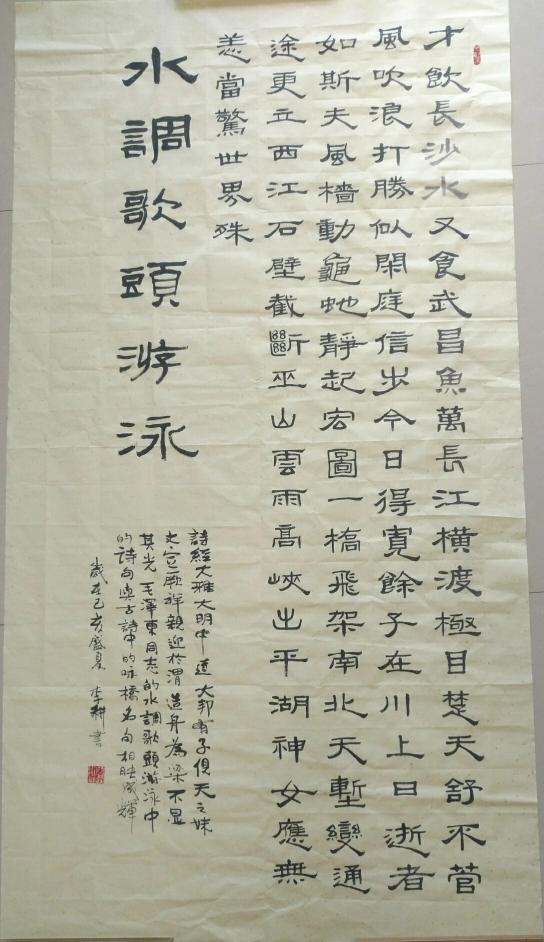 才飲長沙水又食武昌魚萬長江橫渡極目楚天舒不管
風吹浪打勝似閑庭信步今日得寬餘子在川上曰逝者
如斯夫風檣動龜蛇靜起宏圖一橋飛架南北天塹變通
途更立西江石壁截斷巫山雲雨高峽出平湖神女應無
恙當驚世界殊
水調歌頭游泳
詩經大雅大明中道大邦有子俔天之妹
文定厥祥親迎於渭造舟為梁不显
其光毛澤東同志的水調歌頭游泳中
的詩句與古詩中的咏橋名句相映成輝
歲在己亥盛夏李耕書